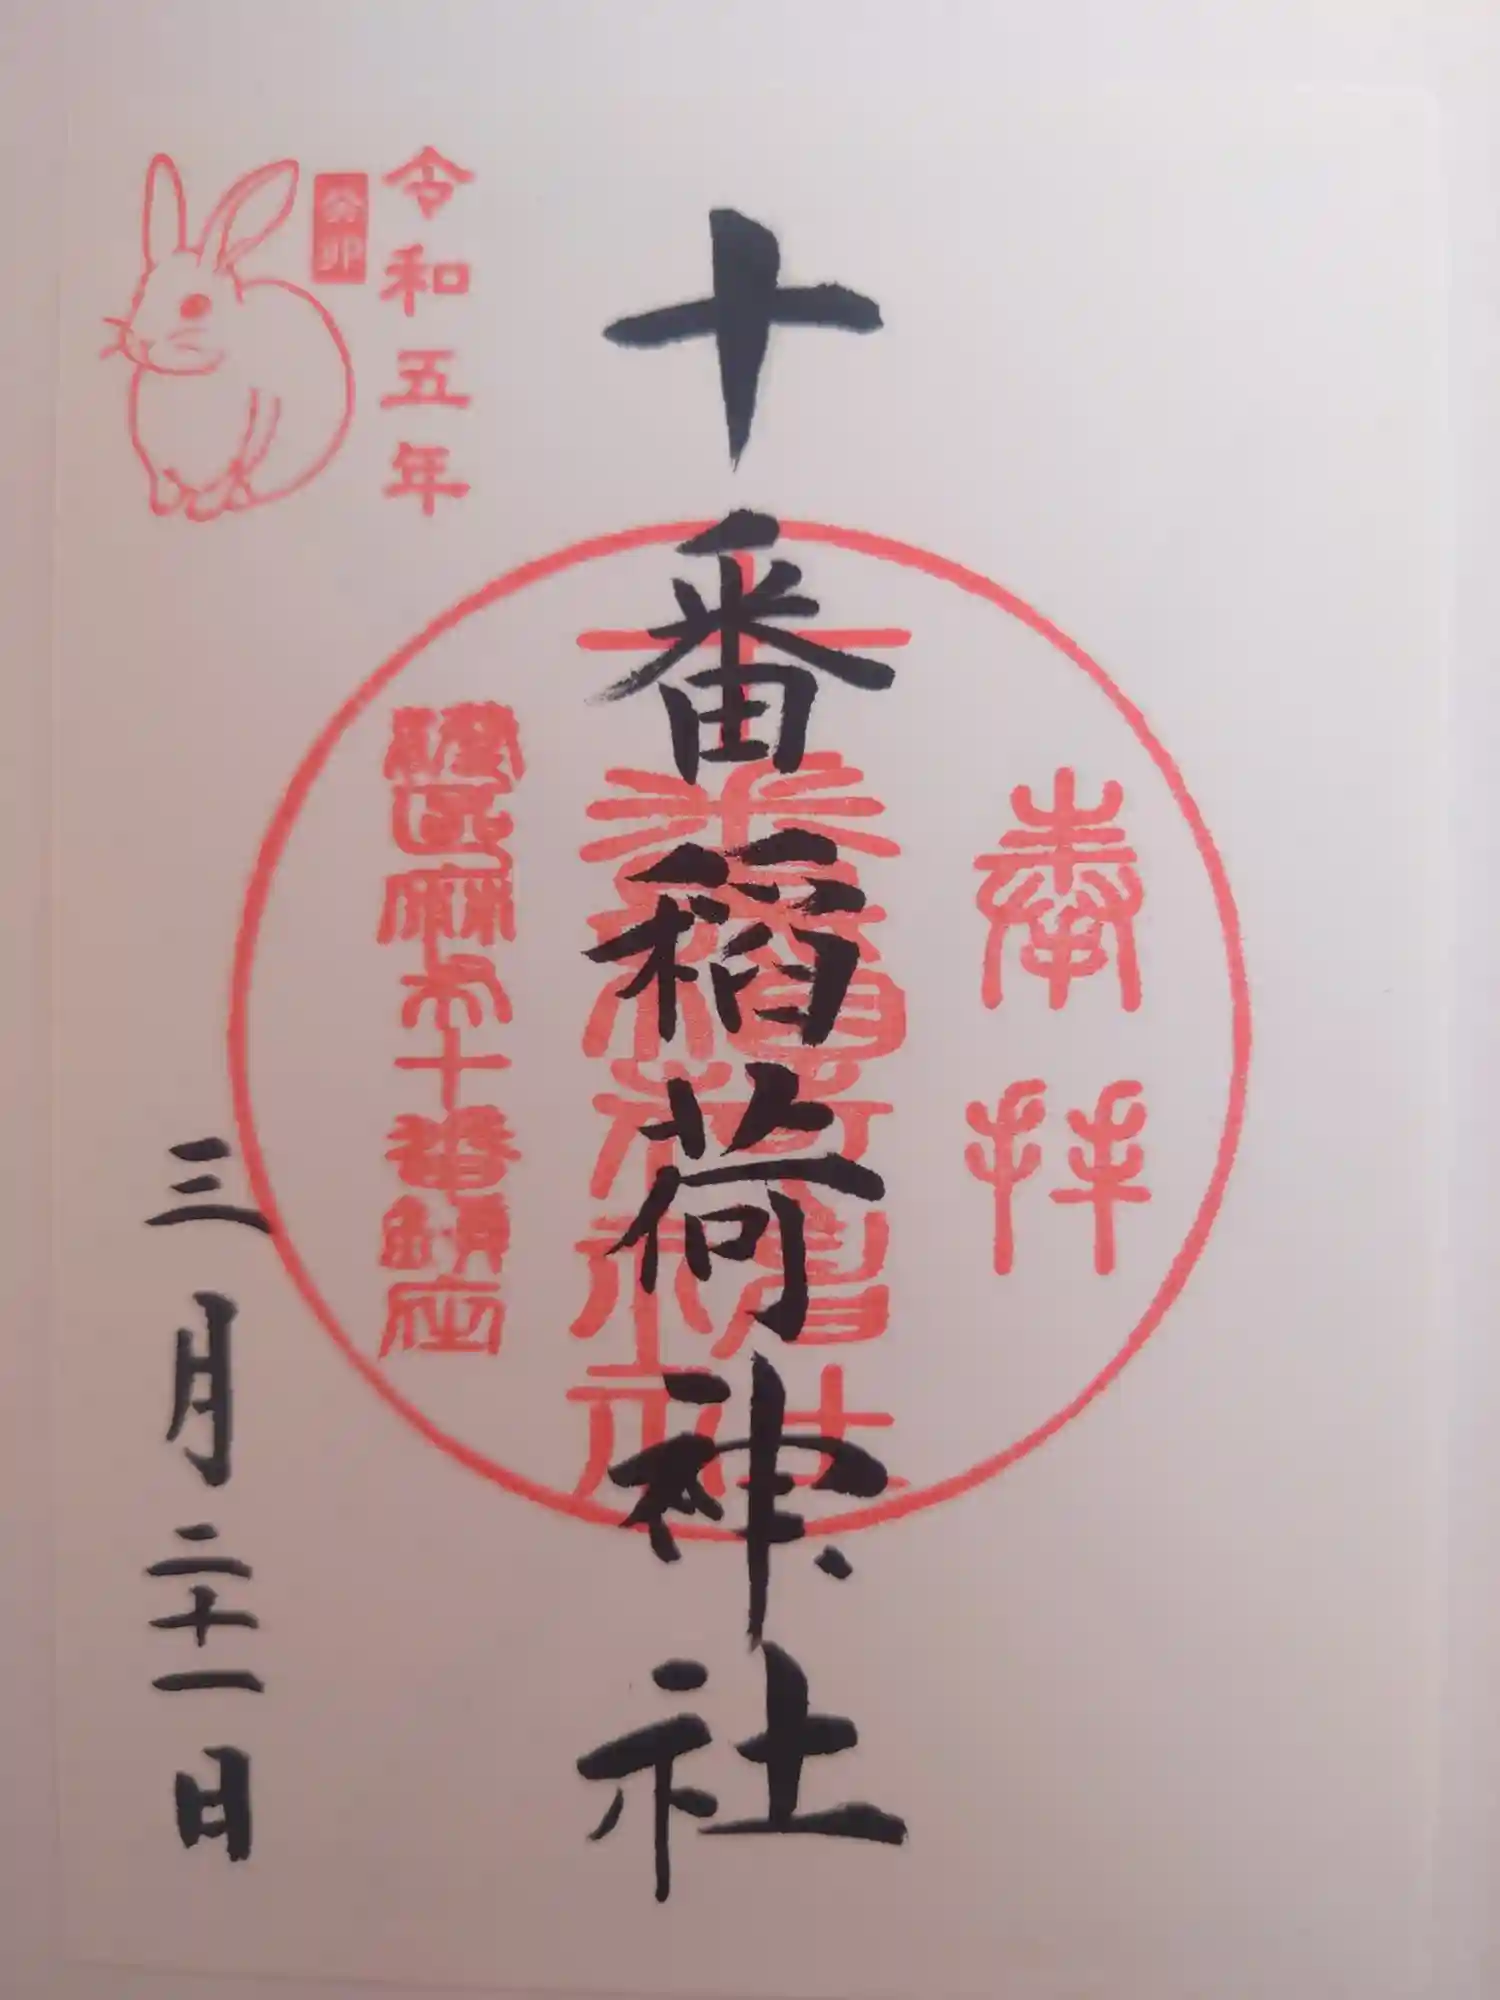 奉拝
十番稲荷神社
十番稲荷神社
港区麻布十番鎮座
令和五年
癸卯
三月二十一日